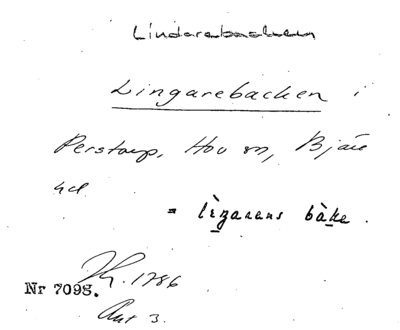 Lindarebacken
Lingarebacken i
Perstorp, Hov sn, Bjäre
hd.
= lèzarens bàke.
1786
Nr 7098.
Ant 3.